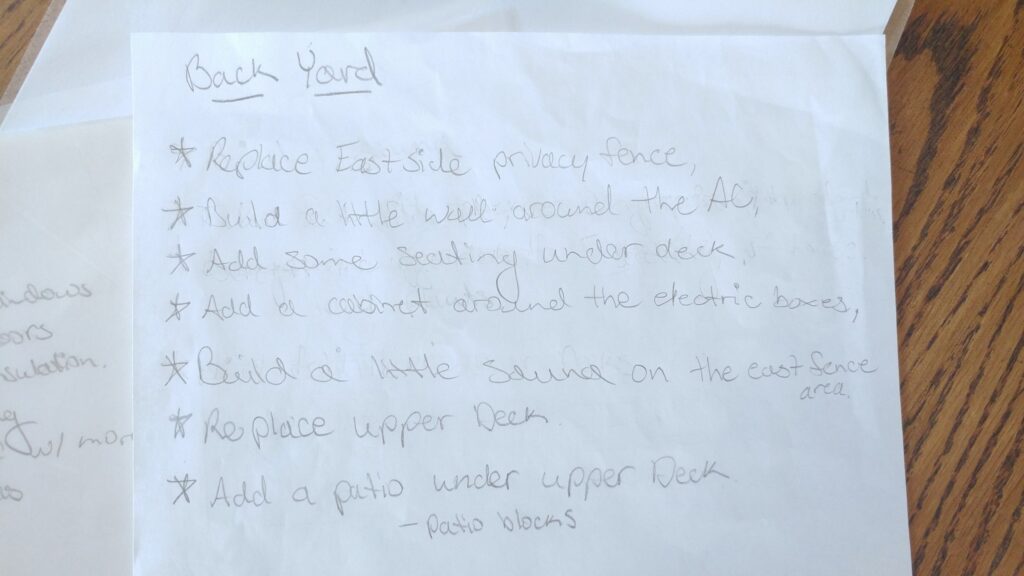 Back Yard
* Replace Eastside privacy fence,
* Build a little wall around the AC,
* Add some seating under deck,
* Add a cabinet around the electric boxes,
* Build a little sauna on the east fence
area.
* Replace upper Deck.
* Add a patio under upper Deck
- patio blocks
indows
oors
nsulation.
w/ mor